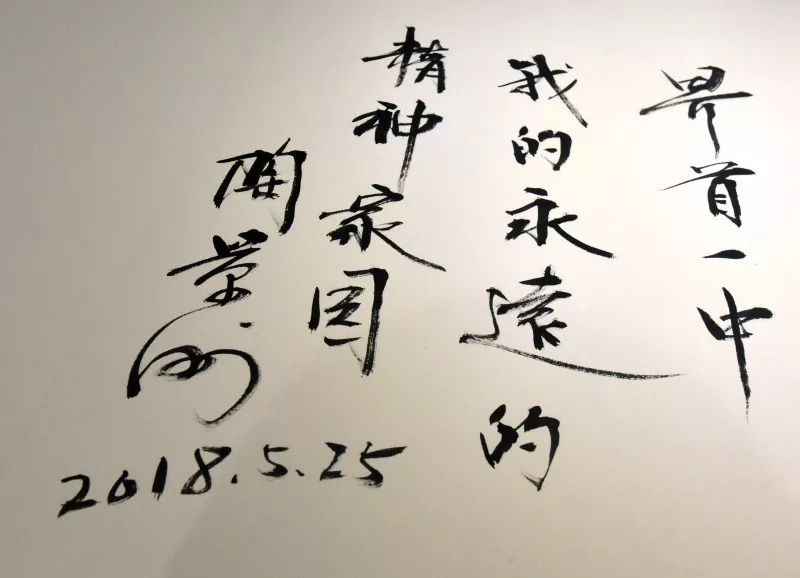 界首一中
我的永远的
精神家园
陶景洲
2018.5.25